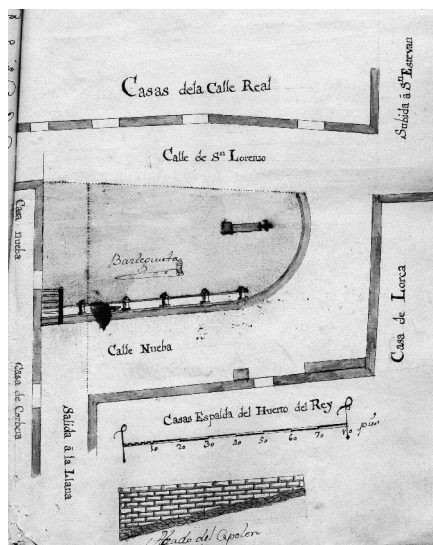 Casas dela Calle Real
Subida á Sⁿ Estevan
Calle de Sⁿ Lorenzo
Casa nueba
Barlegueta
Casa de Lorca
Calle Nueba
Casa de
Salida á la Llana
Casas Espalda del Huerto del Rey
10 20 30 40 50 60 70
Alzado del